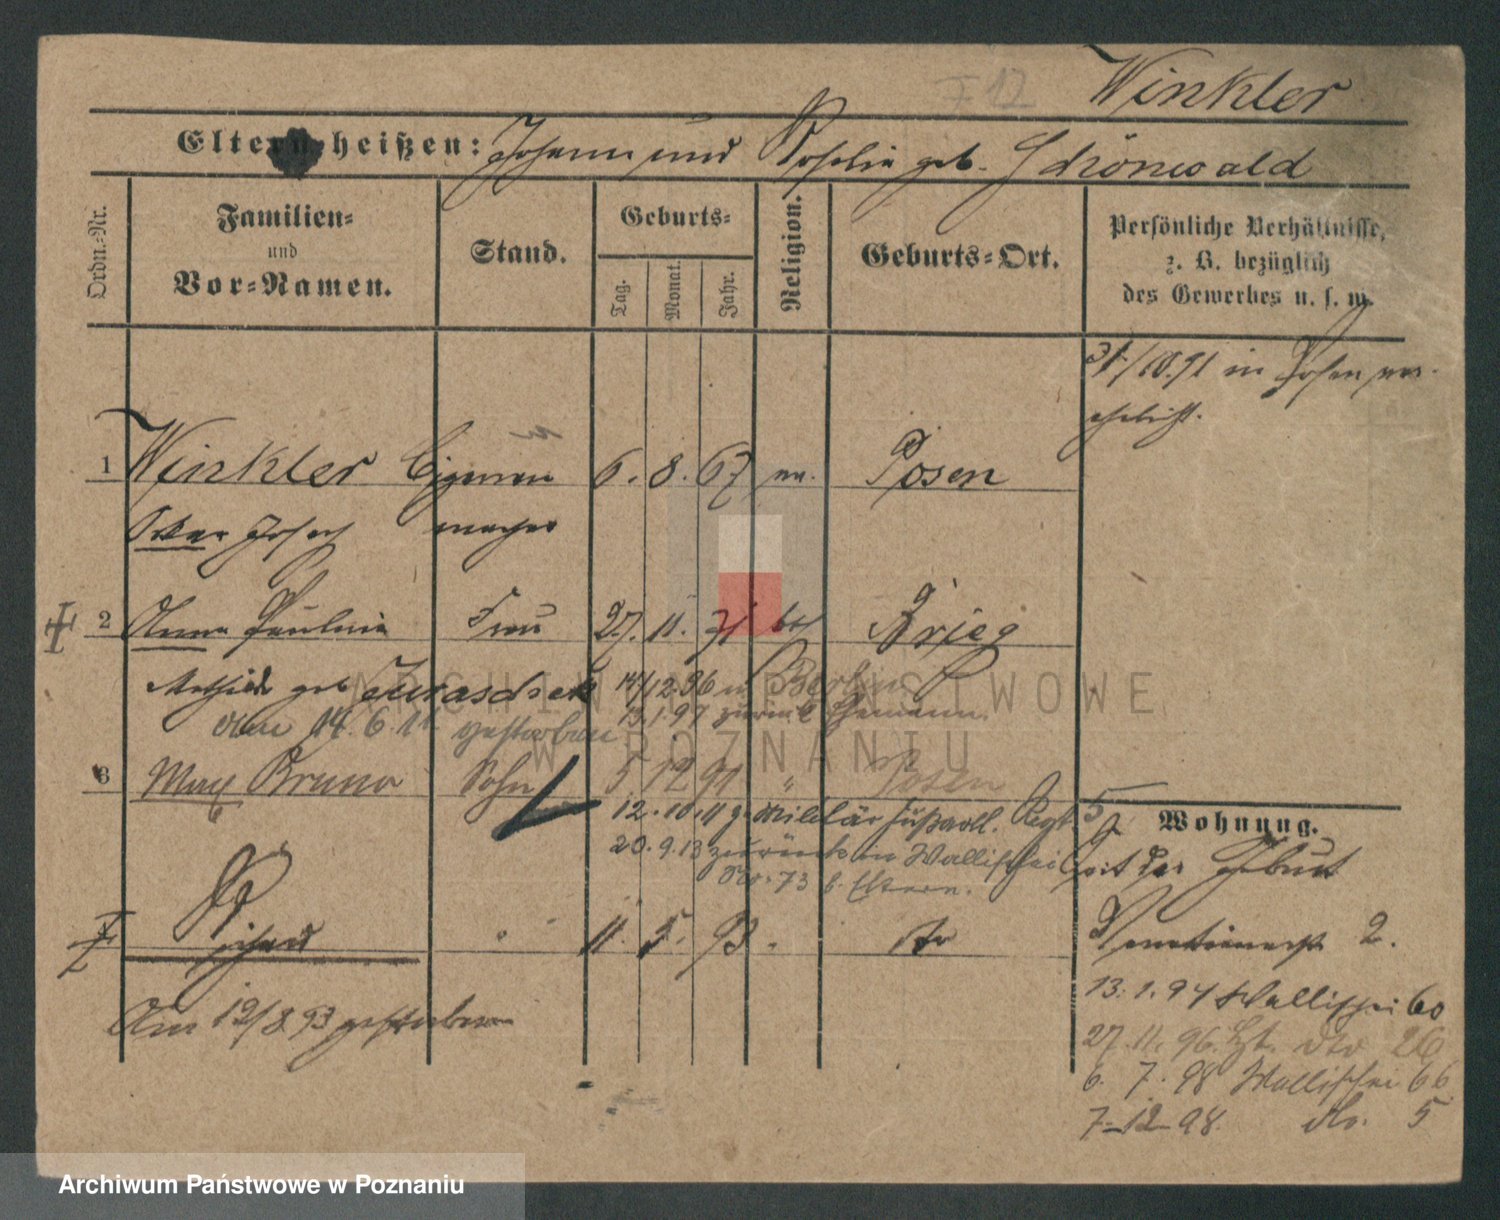 F 12
Winkler
Eltern heißen: Johann und Rosalie geb. Schönwald
Ordn.-Nr.
Familien-
und
Vor-Namen.
Stand.
Geburts-
Tag.
Monat.
Jahr.
Religion.
Geburts-Ort.
Persönliche Verhältnisse,
z. B. bezüglich
des Gewerbes u. s. w.
31/10.91 in Posen ver-
ehelicht.
1 Winkler Cigarren 6. 8. 67 Posen
Oskar Josef macher
2 Anna Paulina Frau 27. 11. 71 Brieg
geb Juraschek 14/12.96 n Berlin
am 14.6.11 gestorben 13.1.97 zurück Ehemann.
3 Max Bruno Sohn 5 12 91 " Posen
12.10.11 z. Militär Fußartl. Regt 5
20.9.13 zurück n Wallischei
No. 73 b. Eltern.
Richard " 11. 5. 93 " dto
Am 19/8.93 gestorben
Wohnung.
Seit der Geburt
2.
13.1.94 Wallischei 60
27.11.96. dto 26
6. 7. 98 Wallischei 66
7-12-98. do. 5
ARCHIWUM PAŃSTWOWE
W POZNANIU
Archiwum Państwowe w Poznaniu